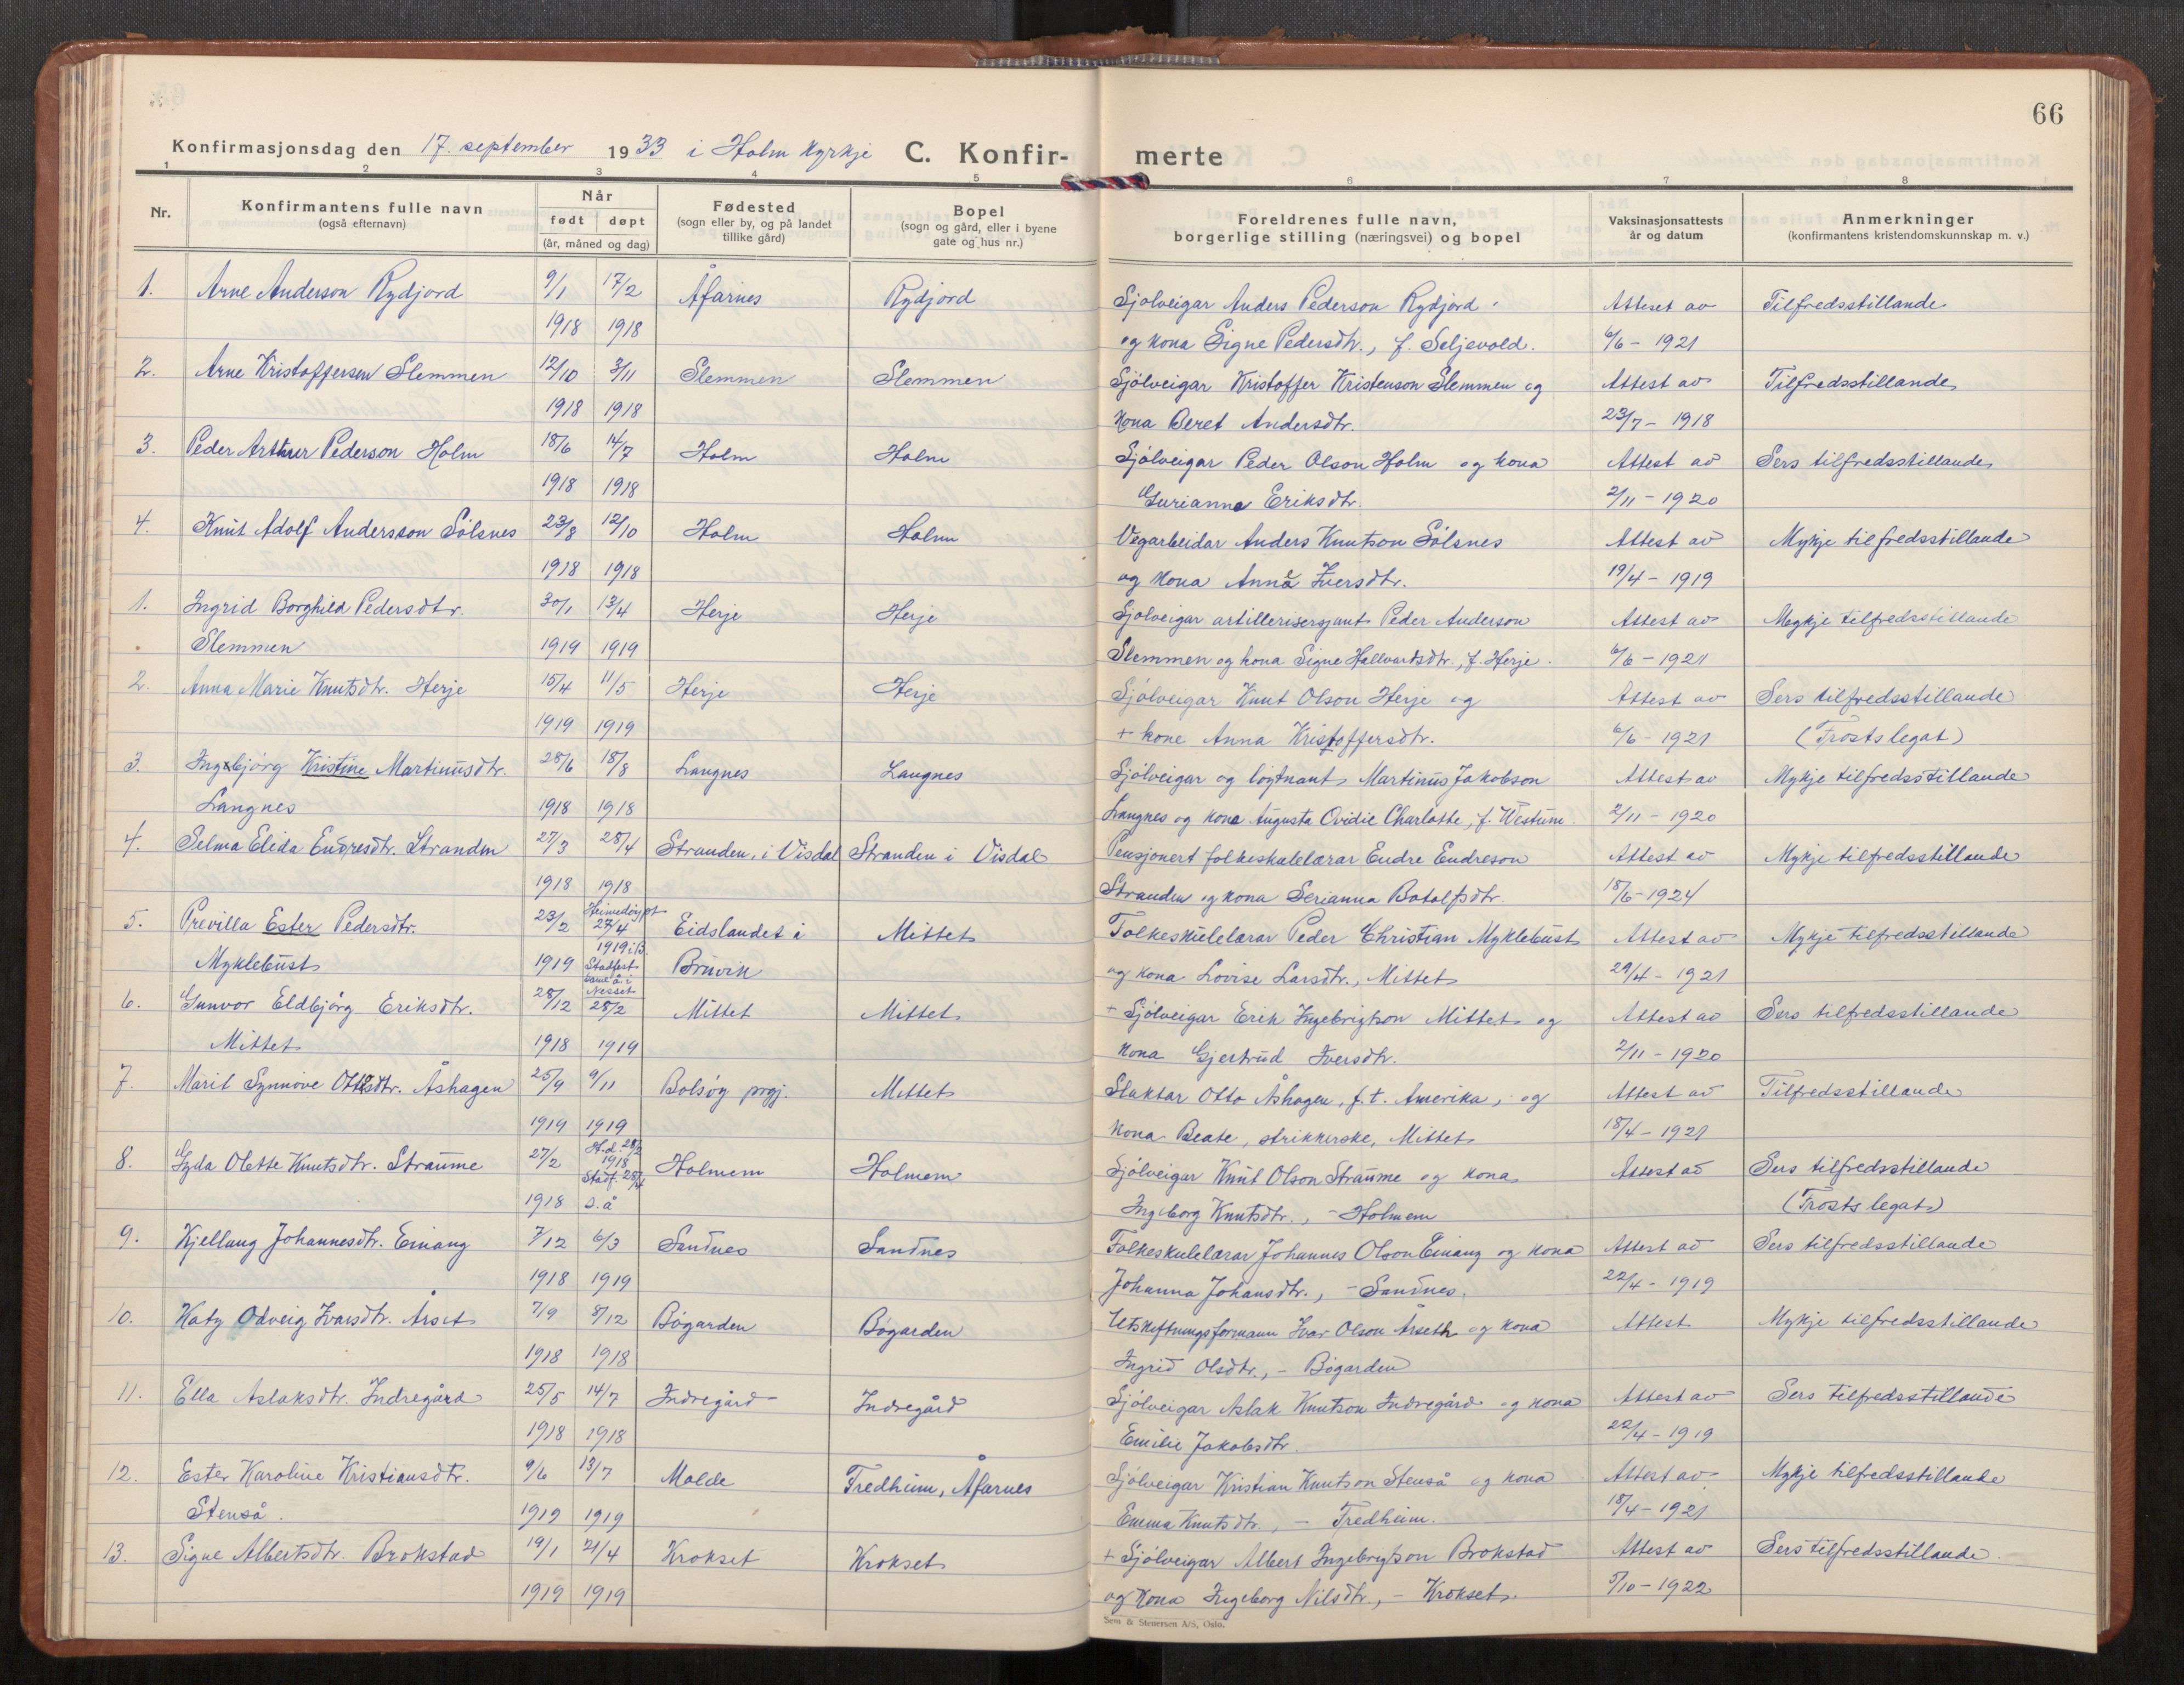 66
Konfirmasjonsdag den 17. september 1933 i Holm kyrkje C. Konfirmerte
1 2 3 4 5 6 7 8
Nr. Konfirmantens fulle navn (også efternavn) Når født døpt (år, måned og dag) Fødested (sogn eller by, og på landet tillike gård) Bopel (sogn og gård, eller i byene gate og hus nr.) Foreldrenes fulle navn, borgerlige stilling (næringsvei) og bopel Vaksinasjonsattests år og datum Anmerkninger (konfirmantens kristendomskunnskap m. v.)
1. Arne Anderson Rydjord 9/1 17/2 Åfarnes Rydjord Sjølveigar Anders Pederson Rydjord Attest av Tilfredsstillande
1918 1918 og kona Signe Pedersdtr., f. Seljevold. 6/6 - 1921
2. Arne Kristoffersen Slemmen 12/10 3/11 Slemmen Slemmen Sjølveigar Kristoffer Kristenson Slemmen og Attest av Tilfredsstillande
1918 1918 kona Beret Andersdtr. 23/7 - 1918
3. Peder Arthur Pederson Holm 18/6 14/7 Holm Holm Sjølveigar Peder Olson Holm og kona Attest av Sers tilfredsstillande
1918 1918 Gurianna Eriksdtr. 2/11 - 1920
4. Knut Adolf Andersson Sølsnes 23/8 12/10 Holm Holm Vegarbeidar Anders Knutson Sølsnes Attest av Mykje tilfredsstillande
1918 1918 og kona Anna Iversdtr. 19/4 - 1919
1. Ingrid Borghild Pedersdtr. 30/1 13/4 Herje Herje Sjølveigar artillerisersjant Peder Anderson Attest av Mykje tilfredsstillande
Slemmen 1919 1919 Slemmen og kona Signe Hallvardsdtr., f. Herje. 6/6 - 1921
2. Anna Marie Knutsdtr. Herje 15/4 11/5 Herje Herje Sjølveigar Knut Olson Herje og Attest av Sers tilfredsstillande
1919 1919 + kone Anna Kristoffersdtr. 6/6 - 1921 (Frosts legat)
3. Ingebjørg Kristine Martinusdtr. 28/6 18/8 Langnes Langnes Sjølveigar og løytnant Martinus Jakobson Attest av Mykje tilfredsstillande
Langnes 1918 1918 Langnes og kona Augusta Ovidie Charlotte, f. Westum. 2/11 - 1920
4. Selma Elida Endresdtr. Stranden 27/3 28/4 Stranden, i Visdal Stranden i Visdal Pensjonert folkeskulelærar Endre Endreson Attest av Mykje tilfredsstillande
1918 1918 Stranden og kona Serianna Botolfsdtr. 18/6 - 1924
5. Previlla Ester Pedersdtr. 23/2 Heimedøypt 27/4 1919 i B. Eidslandet i Mittet Folkeskulelærar Peder Christian Myklebust Attest av Mykje tilfredsstillande
Myklebust 1919 Stadfest same å. i Nesset Bruvik og kona Lovise Larsdtr., Mittet 29/4 - 1921
6. Gunvor Eldbjørg Eriksdtr. 28/12 28/2 Mittet Mittet + Sjølveigar Erik Ingebrigtson Mittet og Attest av Sers tilfredsstillande
Mittet 1918 1919 kona Gjertrud Iversdtr. 2/11 - 1920
7. Marit Synnøve Ottosdtr. Åshagen 25/9 9/11 Bolsøy prgj. Mittet Slaktar Otto Åshagen, f.t. Amerika, og Attest av Tilfredsstillande
1919 1919 kona Beate, strikkerske, Mittet 18/4 - 1921
8. Gyda Olette Knutsdtr. Straume 27/2 H.d. 28/2 1918 Holmem Holmem Sjølveigar Knut Olson Straume og kona Attest av Sers tilfredsstillande
1918 Stadf. 28/4 s. å Ingeborg Knutsdtr., - Holmem (Frosts legat)
9. Kjellaug Johannesdtr. Einang 7/12 6/3 Sandnes Sandnes Folkeskulelærar Johannes Olson Einang og kona Attest av Sers tilfredsstillande
1918 1919 Johanna Johansdtr., - Sandnes. 22/4 - 1919
10. Katy Odveig Ivarsdtr. Årset 7/9 8/12 Bøgarden Bøgarden Utskiftningsformann Ivar Olson Årseth og kona Attest Mykje tilfredsstillande
1918 1918 Ingrid Olsdtr., - Bøgarden
11. Ella Aslaksdtr. Indregård 25/5 14/7 Indregård Indregård Sjølveigar Aslak Knutson Indregård og kona Attest av Sers tilfredsstillande
1918 1918 Emilie Jakobsdtr. 22/4 - 1919
12. Ester Karoline Kristiansdtr. 9/6 13/7 Molde Fredheim, Åfarnes Sjølveigar Kristian Knutson Stenså og kona Attest av Mykje tilfredsstillande
Stenså. 1919 1919 Emma Knutsdtr., - Fredheim. 18/4 - 1921
13. Signe Albertsdtr. Brokstad 19/1 21/4 Krokset Krokset + Sjølveigar Albert Ingebrigtson Brokstad Attest av Sers tilfredsstillande.
1919 1919 og kona Ingeborg Nilsdtr., - Krokset. 5/10 - 1922
Sem & Stenersen A/S, Oslo.